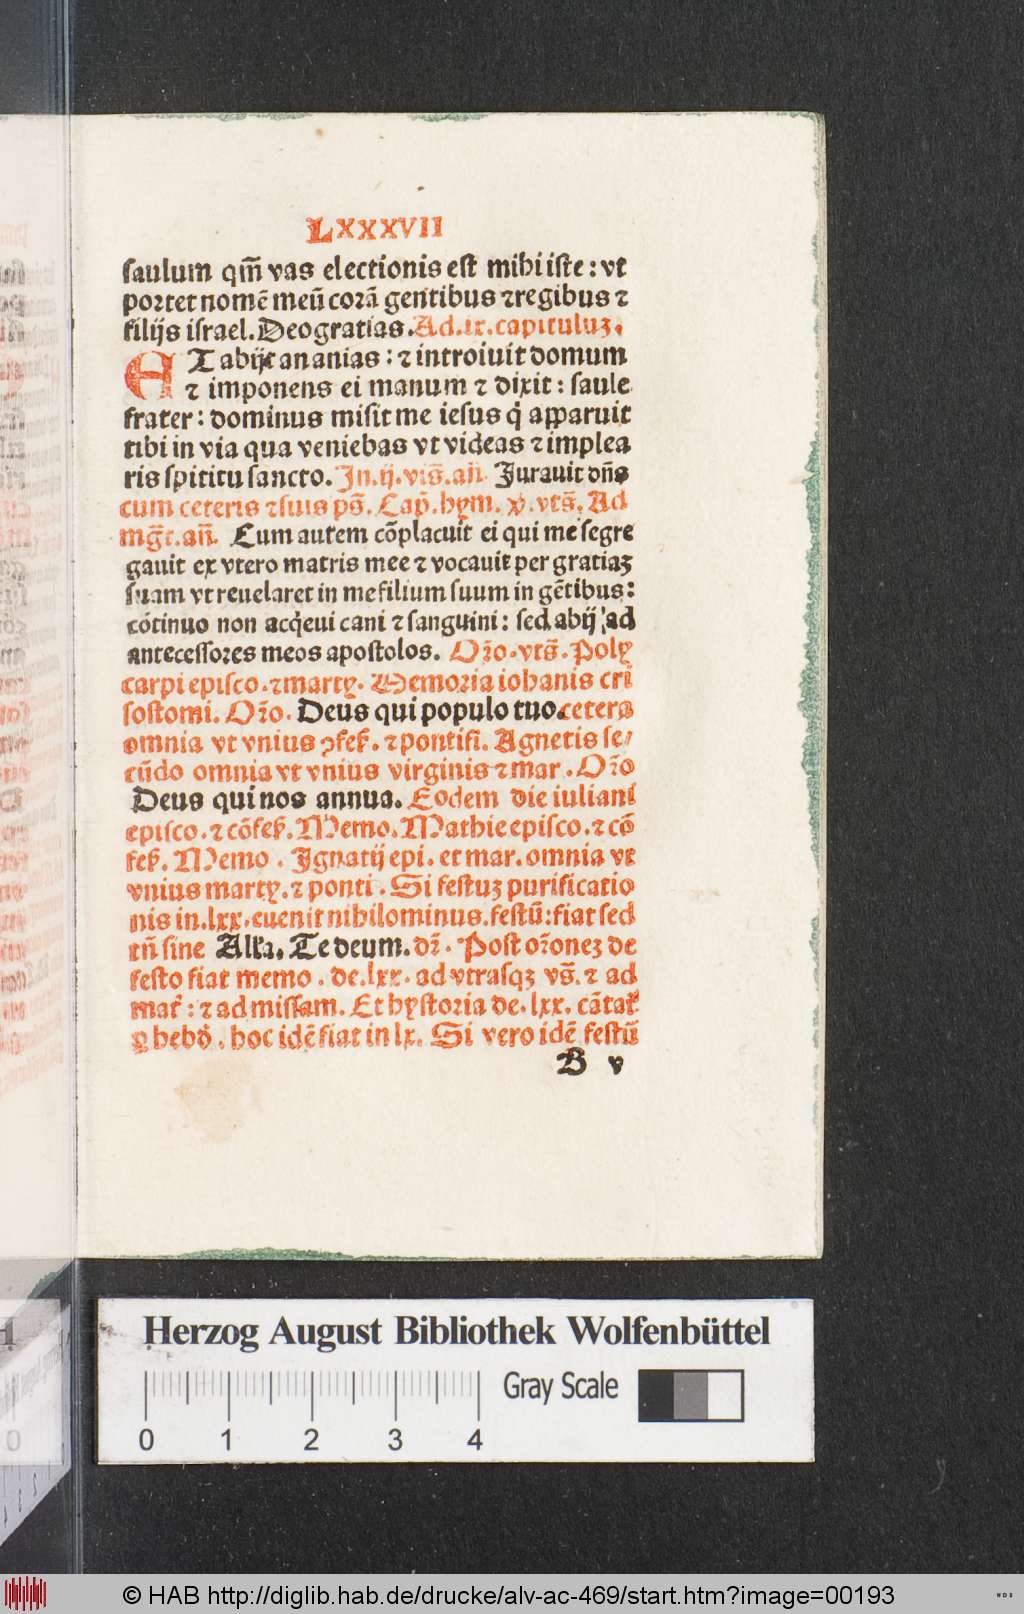 LXXXVII
saulum qm̄ vas electionis est mihi iste: vt
portet nomē meū corā gentibus ⁊ regibus ⁊
filijs israel. Deo gratias. Ad .ix. capituluꝫ.
ET abijt ananias: ⁊ introiuit domum
⁊ imponens ei manum ⁊ dixit: saule
frater: dominus misit me iesus q̇ apparuit
tibi in via qua veniebas vt videas ⁊ implea
ris spiritu sancto. In .ij. vis̄. an̄. Jurauit dn̄s
cum ceteris ⁊ suis ps̄. Cap̄. hym. ꝟ. vts̄. Ad
mḡt. an̄. Cum autem cōplacuit ei qui me segre
gauit ex vtero matris mee ⁊ vocauit per gratiaꝫ
suam vt reuelaret in me filium suum in gētibus:
cōtinuo non acq̇eui cani ⁊ sanguini: sed abij ad
antecessores meos apostolos. Or̄o. vts̄. Poly
carpi episco. ⁊ marty. Memoria iohanis cri
sostomi. Or̄o. Deus qui populo tuo. cetera
omnia vt vnius ꝯfeſ. ⁊ pontifi. Agnetis se/
cūdo omnia vt vnius virginis ⁊ mar. Or̄o
Deus qui nos annua. Eodem die iuliani
episco. ⁊ cōfeſ. Memo. Mathie episco. ⁊ cō
feſ. Memo. Ignatij epi. et mar. omnia vt
vnius marty. ⁊ ponti. Si festuꝫ purificatio
nis in .lxx. euenit nihilominus. festū: fiat sed
tn̄ sine Alla. Te deum. dr̄. Post or̄oneꝫ de
festo fiat memo. de .lxx. ad vtrasqꝫ vs̄. ⁊ ad
mat̄: ⁊ ad missam. Et hystoria de .lxx. cātat
ꝑ hebd. hoc idē fiat in lx. Si vero idē festū
B v
Herzog August Bibliothek Wolfenbüttel
Gray Scale
0 1 2 3 4
© HAB http://diglib.hab.de/drucke/alv-ac-469/start.htm?image=00193